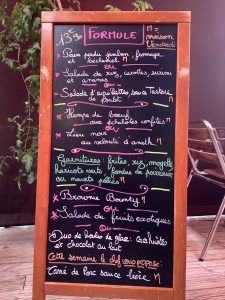 13€90 FORMULE M = maison
Vendredi
* Pain perdu jambon, fromage
et béchamel M
ou
* Salade de riz, carottes, surimi
et ananas M
ou
* Salade d'aiguillettes, sauce Tartare
de poulet M
* Hampe de bœuf
aux échalotes confites M
ou
* Lieu noir
au velouté d'aneth M
Garnitures: frites, riz, mogette
haricots verts, fondue de poireaux
ou navets poêlés M
* Brownie Bounty M
ou
* Salade de fruits exotiques
ou
* Duo de boules de glace: cacahuètes
et chocolat au lait
Cette semaine le chef vous propose:
Carré de Porc sauce bière M